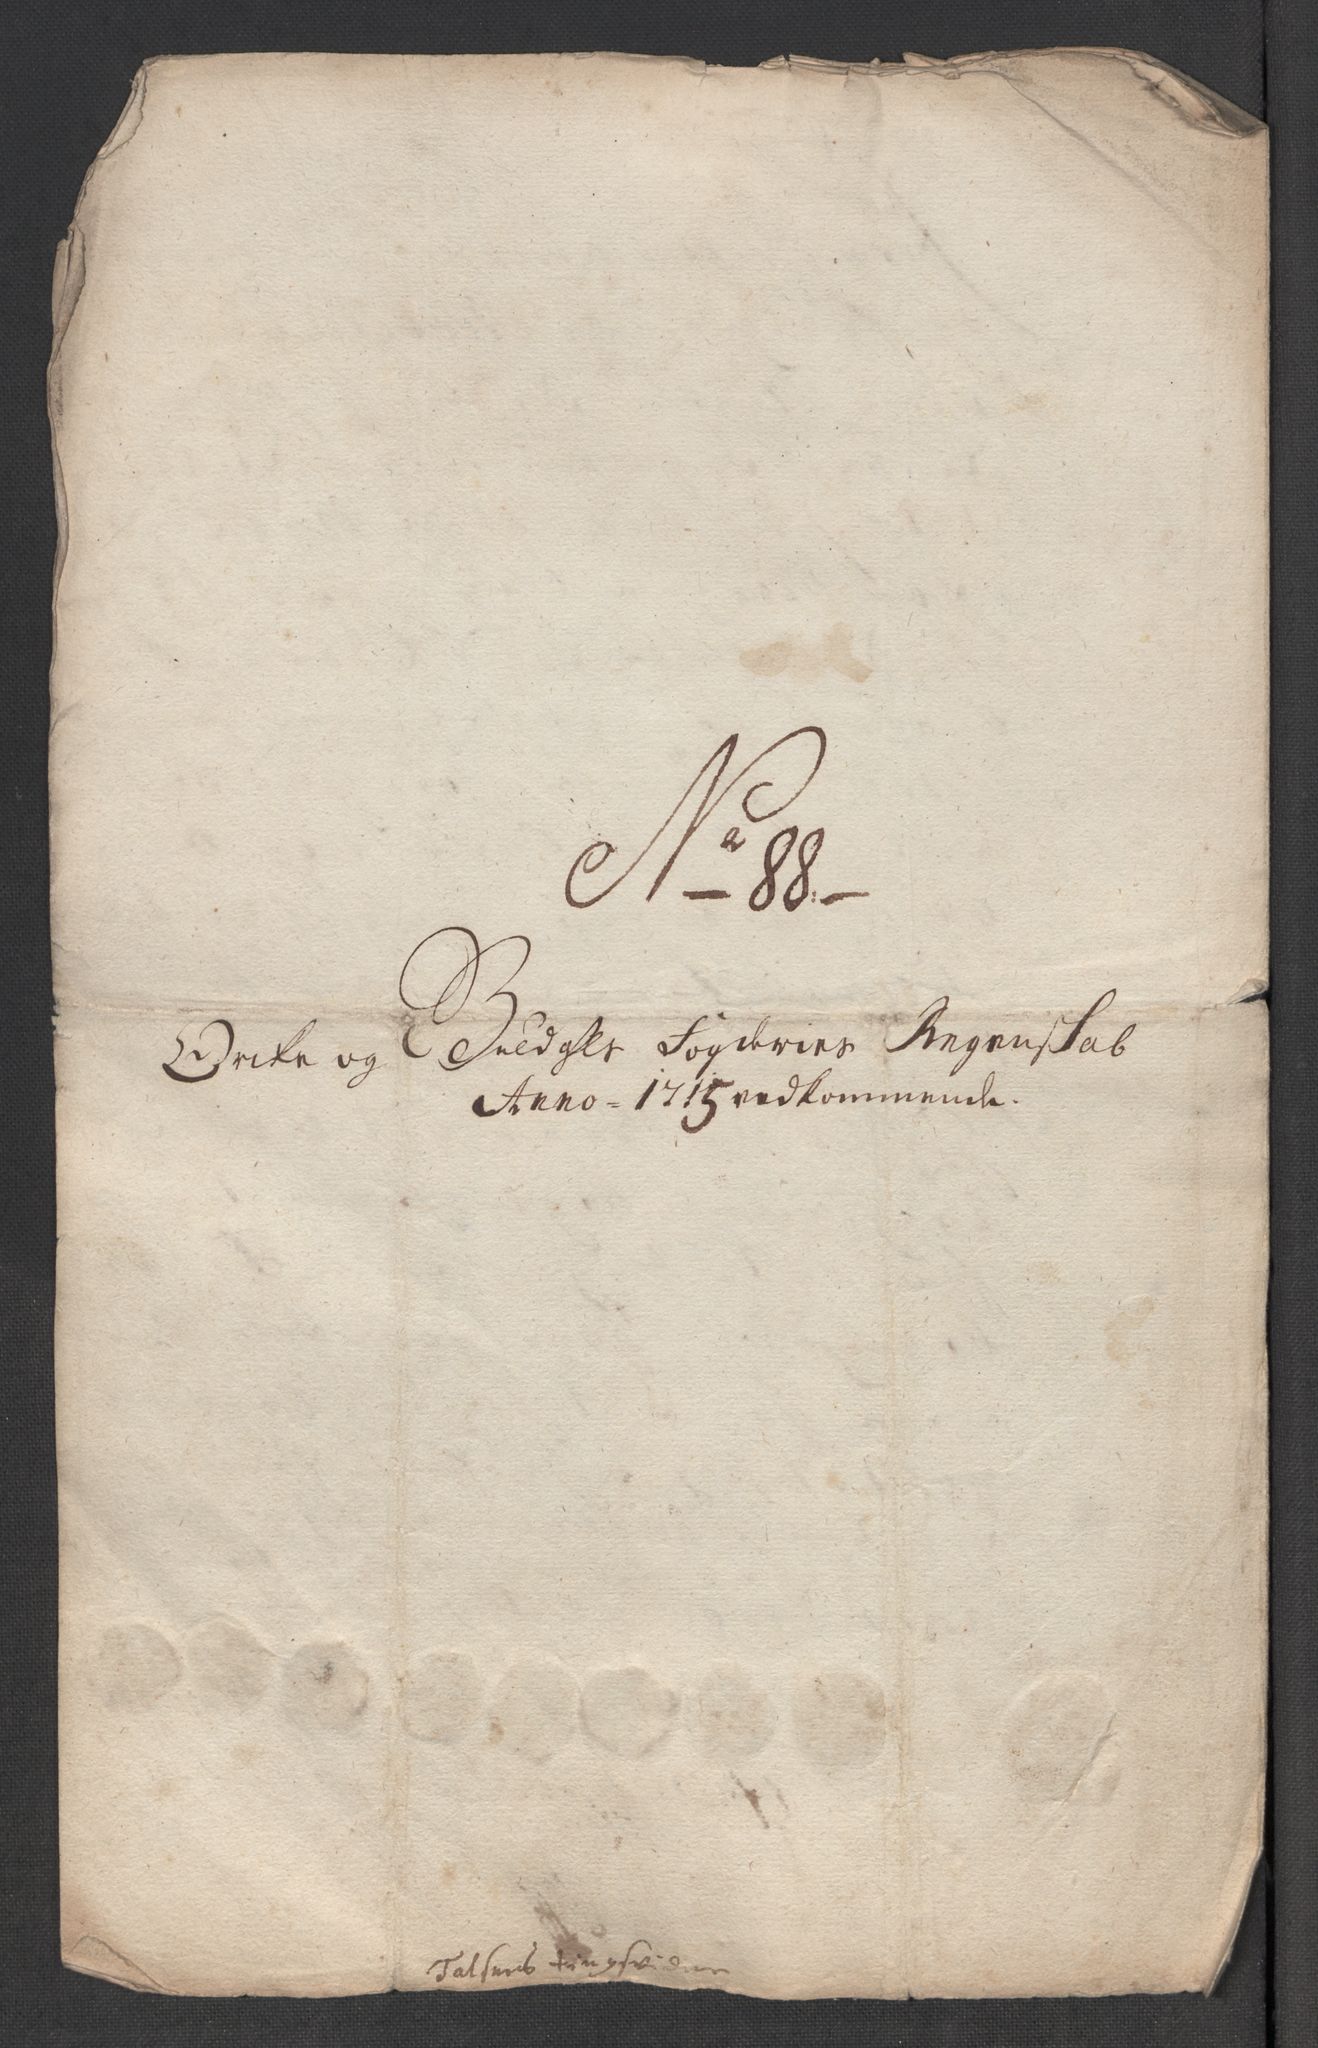 No 88.
Orcke og Guldahls Fogderies Regenskab
Anno = 1715 vedkommende.
tingsvidne